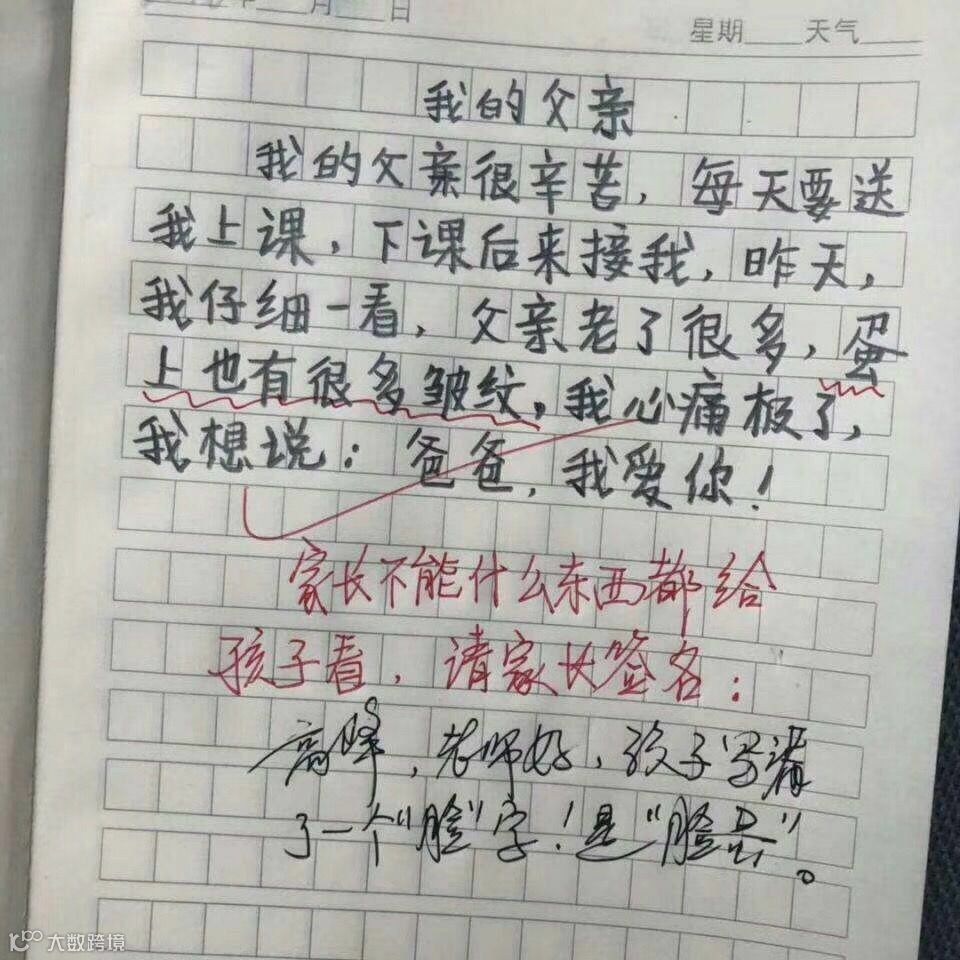 年 月 日
星期 天气
我的父亲
我的父亲很辛苦，每天要送
我上课，下课后来接我，昨天，
我仔细一看，父亲老了很多，蛋
上也有很多皱纹，我心痛极了，
我想说：爸爸，我爱你！
家长不能什么东西都给
孩子看，请家长签名：
高峰，老师好，孩子写漏
了一个“脸”字！是“脸蛋”。
大数跨境